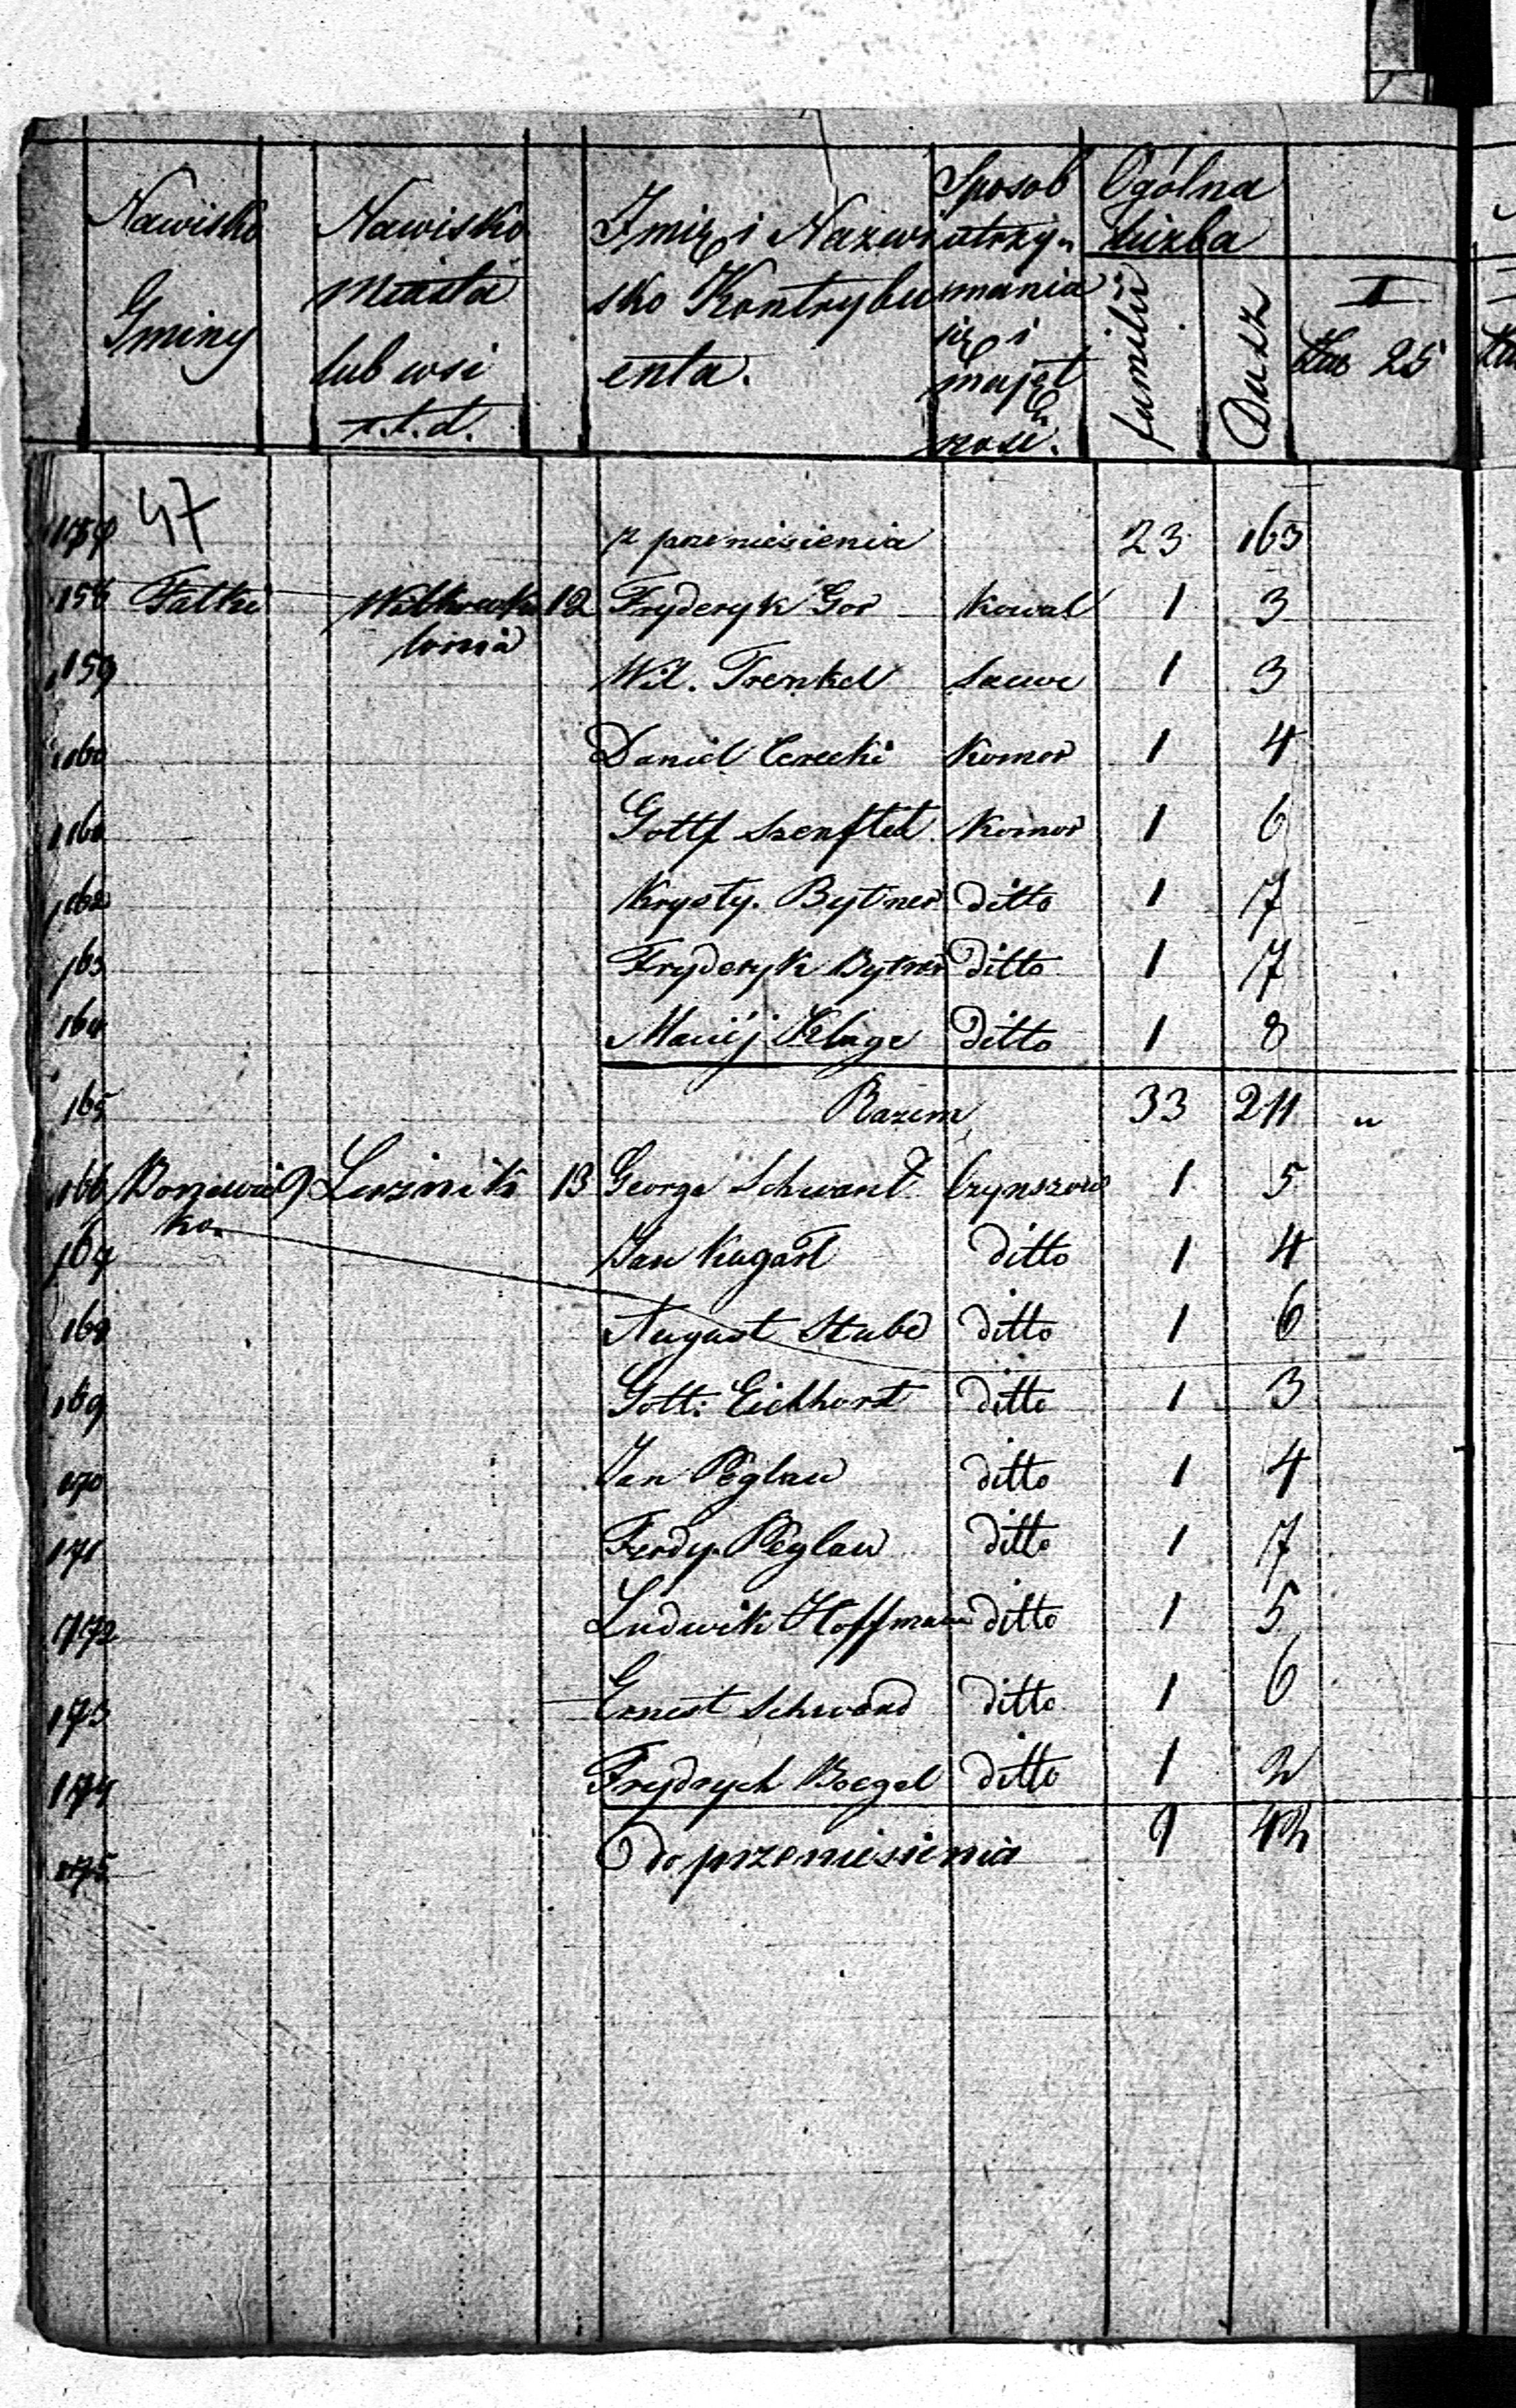 Nazwisko Gminy
Nazwisko miasta lub wsi t.t.d.
Imię i Nazwisko Kontrybuenta.
Sposob utrzymania się i majętność.
Ogólna liczba
familii
Dusz
I
Klas 25
47
157 z przeniesienia 23 163
158 Fatki 12 Fryderyk Gor Kowal 1 3
159 Wil. Frenkel Szewc 1 3
160 Daniel Cerecki Komor 1 4
161 Gottf Szenftel Komor 1 6
162 Krysty. Bytner ditto 1 7
163 Fryderyk Bytner ditto 1 7
164 Maciéj Kluge ditto 1 8
165 Razem 33 211 "
166 9 13 George Schwant Czynszow 1 5
167 Jan Kugast ditto 1 4
168 August Stube ditto 1 6
169 Gott: Eichhorst ditto 1 3
170 Jan Peglau ditto 1 4
171 Ferdy. Peglau ditto 1 7
172 Ludwik Hoffmann ditto 1 5
173 Ernest Schwand ditto 1 6
174 Frydrych Boegel ditto 1 2
175 do przeniesienia 9 42